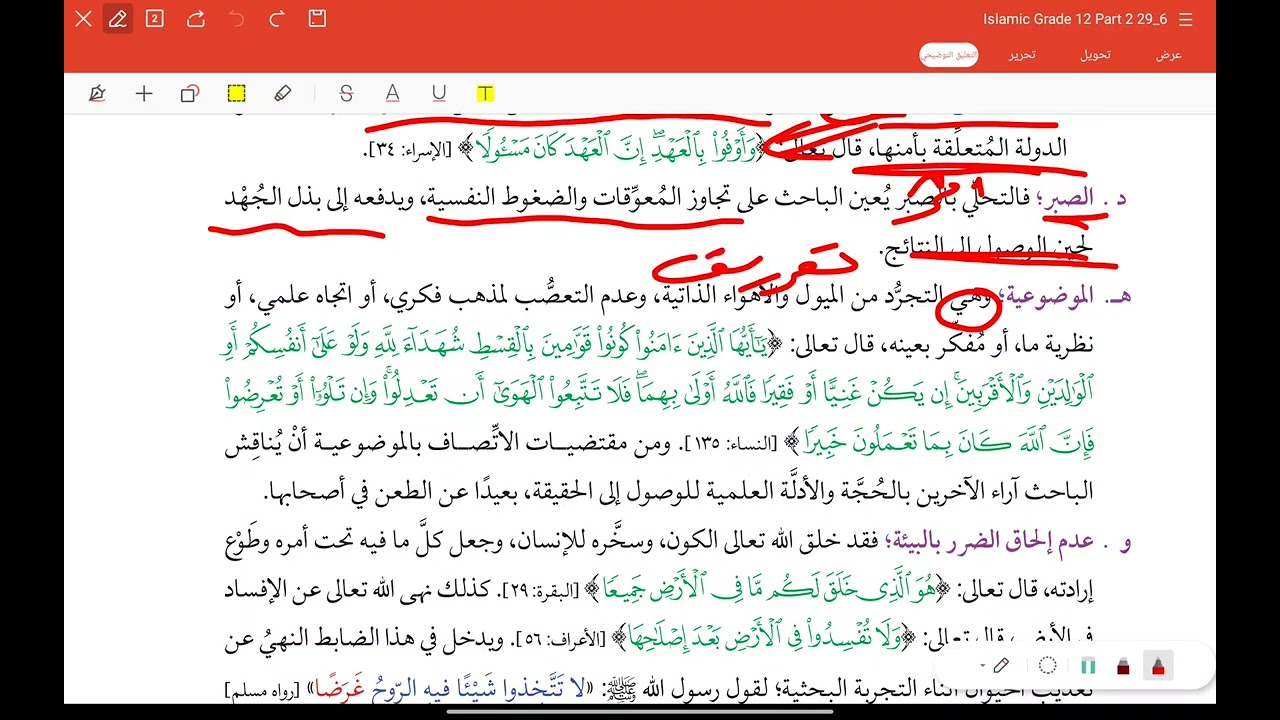 Islamic Grade 12 Part 2 29_6
عرض
تحويل
تحرير
التعليق التوضيحي
2
S A U T
الدولة المُتعلِّقة بأمنها، قال تعالى: ﴿وَأَوۡفُواْ بِٱلۡعَهۡدِۖ إِنَّ ٱلۡعَهۡدَ كَانَ مَسۡـُٔولٗا﴾ [الإسراء: ٣٤].
د . الصبر؛ فالتحلّي بالصبر يُعين الباحث على تجاوز المُعوِّقات والضغوط النفسية، ويدفعه إلى بذل الجُهْد
لحين الوصول إلى النتائج.
تعريف
هـ. الموضوعية؛ وهي التجرُّد من الميول والأهواء الذاتية، وعدم التعصُّب لمذهب فكري، أو اتجاه علمي، أو
نظرية ما، أو مُفكّر بعينه، قال تعالى: ﴿يَٰٓأَيُّهَا ٱلَّذِينَ ءَامَنُواْ كُونُواْ قَوَّٰمِينَ بِٱلۡقِسۡطِ شُهَدَآءَ لِلَّهِ وَلَوۡ عَلَىٰٓ أَنفُسِكُمۡ أَوِ
ٱلۡوَٰلِدَيۡنِ وَٱلۡأَقۡرَبِينَۚ إِن يَكُنۡ غَنِيًّا أَوۡ فَقِيرٗا فَٱللَّهُ أَوۡلَىٰ بِهِمَاۖ فَلَا تَتَّبِعُواْ ٱلۡهَوَىٰٓ أَن تَعۡدِلُواْۚ وَإِن تَلۡوُۥٓاْ أَوۡ تُعۡرِضُواْ
فَإِنَّ ٱللَّهَ كَانَ بِمَا تَعۡمَلُونَ خَبِيرٗا﴾ [النساء: ١٣٥]. ومن مقتضيـات الاتِّصـاف بالموضوعيـة أنْ يُناقِش
الباحث آراء الآخرين بالحُجَّة والأدلَّة العلمية للوصول إلى الحقيقة، بعيدًا عن الطعن في أصحابها.
و . عدم إلحاق الضرر بالبيئة؛ فقد خلق الله تعالى الكون، وسخَّره للإنسان، وجعل كلَّ ما فيه تحت أمره وطَوْع
إرادته، قال تعالى: ﴿هُوَ ٱلَّذِي خَلَقَ لَكُم مَّا فِي ٱلۡأَرۡضِ جَمِيعٗا﴾ [البقرة: ٢٩]. كذلك نهى الله تعالى عن الإفساد
في الأرض، قال تعالى: ﴿وَلَا تُفۡسِدُواْ فِي ٱلۡأَرۡضِ بَعۡدَ إِصۡلَٰحِهَا﴾ [الأعراف: ٥٦]. ويدخل في هذا الضابط النهيُ عن
تعذيب الحيوان أثناء التجربة البحثية؛ لقول رسول الله ﷺ: «لا تَتَّخِذوا شَيْئًا فيهِ الرّوحُ غَرَضًا» [رواه مسلم]